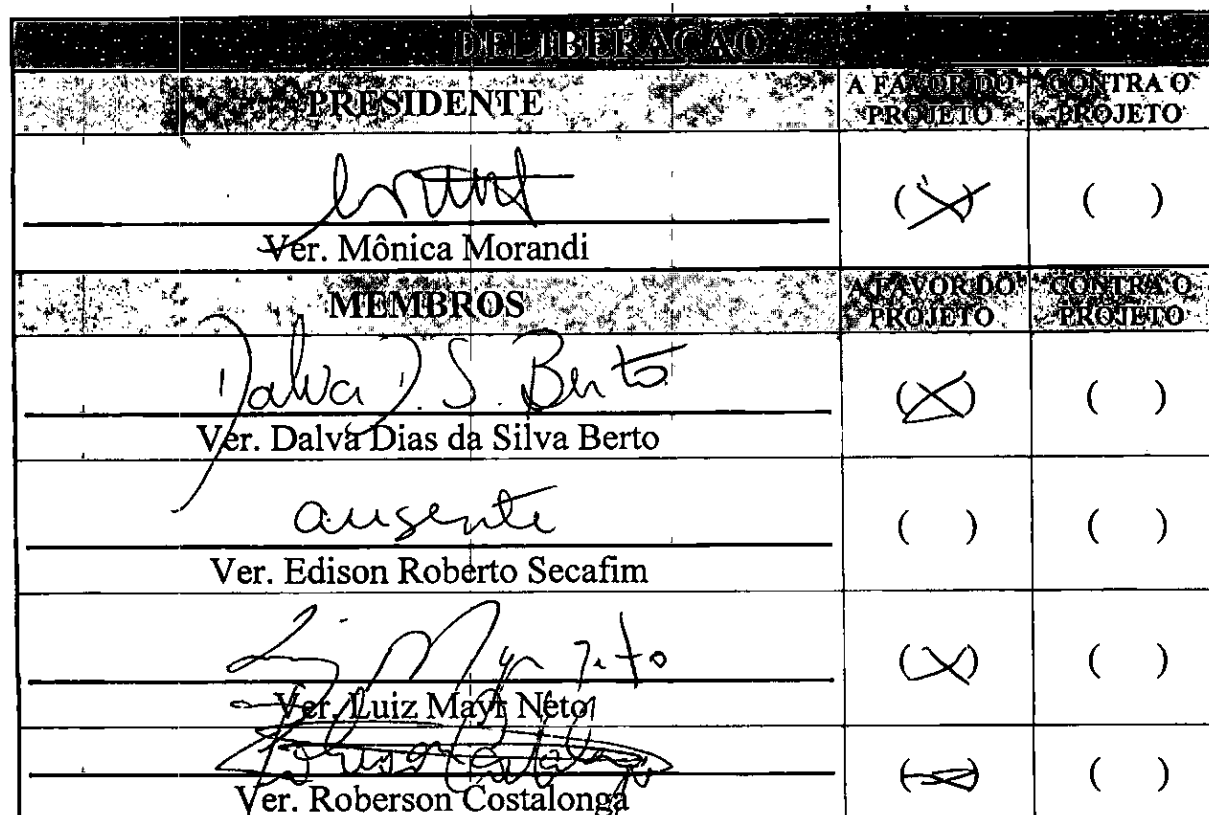 DELIBERAÇÃO
PRESIDENTE A FAVOR DO PROJETO CONTRA O PROJETO
(X) ( )
Ver. Mônica Morandi
MEMBROS A FAVOR DO PROJETO CONTRA O PROJETO
Dalva D. S. Berto (X) ( )
Ver. Dalva Dias da Silva Berto
ausente ( ) ( )
Ver. Edison Roberto Secafim
Luiz Mayr Neto (X) ( )
Ver. Luiz Mayr Neto
Roberson Costalonga (X) ( )
Ver. Roberson Costalonga